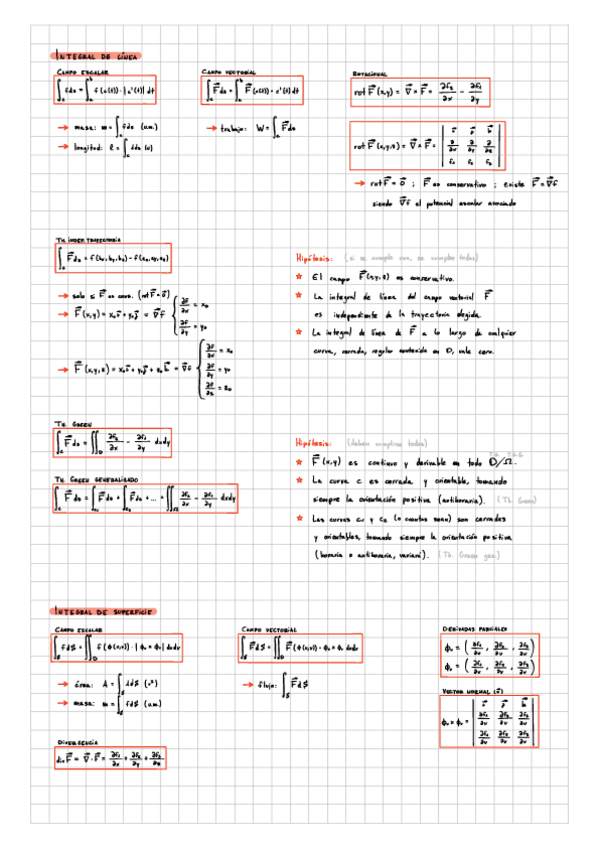 INTEGRAL DE LÍNEA
CAMPO ESCALAR
∫_c f ds = ∫_a^b f(c(t)) · |c'(t)| dt
→ masa: m = ∫_c f ds (u.m.)
→ longitud: l = ∫_c 1 ds (u)
CAMPO VECTORIAL
∫_c F⃗ ds = ∫_a^b F⃗(c(t)) · c'(t) dt
→ trabajo: W = ∫_c F⃗ ds
ROTACIONAL
rot F⃗(x,y) = ∇⃗ × F⃗ = ∂F₂/∂x − ∂F₁/∂y
rot F⃗(x,y,z) = ∇⃗ × F⃗ =
→ rot F⃗ = 0⃗ ; F⃗ es conservativo ; existe F⃗ = ∇⃗f
siendo ∇⃗f el potencial escalar asociado
TH. INDEP. TRAYECTORIA
→ solo si F⃗ es cons. (rot F⃗ = 0⃗)
Hipótesis: (si se cumple una, se cumplen todas)
☆ El campo F⃗(x,y,z) es conservativo.
☆ La integral de línea del campo vectorial F⃗
es independiente de la trayectoria elegida.
☆ La integral de línea de F⃗ a lo largo de cualquier
curva, cerrada, regular contenida en D, vale cero.
TH. GREEN
∫_c F⃗ ds = ∬_D ∂F₂/∂x − ∂F₁/∂y dxdy
TH. GREEN GENERALIZADO
∫_c F⃗ ds = ∫_c₁ F⃗ ds + ∫_c₂ F⃗ ds + ... = ∬_Ω ∂F₂/∂x − ∂F₁/∂y dxdy
Hipótesis: (deben cumplirse todas)
☆ F⃗(x,y) es continuo y derivable en todo D/Ω.
☆ La curva c es cerrada y orientable, tomando
siempre la orientación positiva (antihoraria). (Th. Green)
☆ Las curvas c₁ y c₂ (o cuantas sean) son cerradas
y orientables, tomando siempre la orientación positiva
(horaria o antihoraria, variará). (Th. Green gen.)
INTEGRAL DE SUPERFICIE
CAMPO ESCALAR
∫_S f dS = ∬_D f(ϕ(u,v)) · |ϕᵤ × ϕᵥ| dudv
→ área: A = ∫_S 1 dS (u²)
→ masa: m = ∫_S f dS (u.m.)
CAMPO VECTORIAL
∫_S F⃗ dS = ∬_D F⃗(ϕ(u,v)) · ϕᵤ × ϕᵥ dudv
→ flujo: ∫_S F⃗ dS
DERIVADAS PARCIALES
VECTOR NORMAL (n⃗)
ϕᵤ × ϕᵥ =
DIVERGENCIA
div F⃗ = ∇⃗ · F⃗ = ∂F₁/∂x + ∂F₂/∂y + ∂F₃/∂z